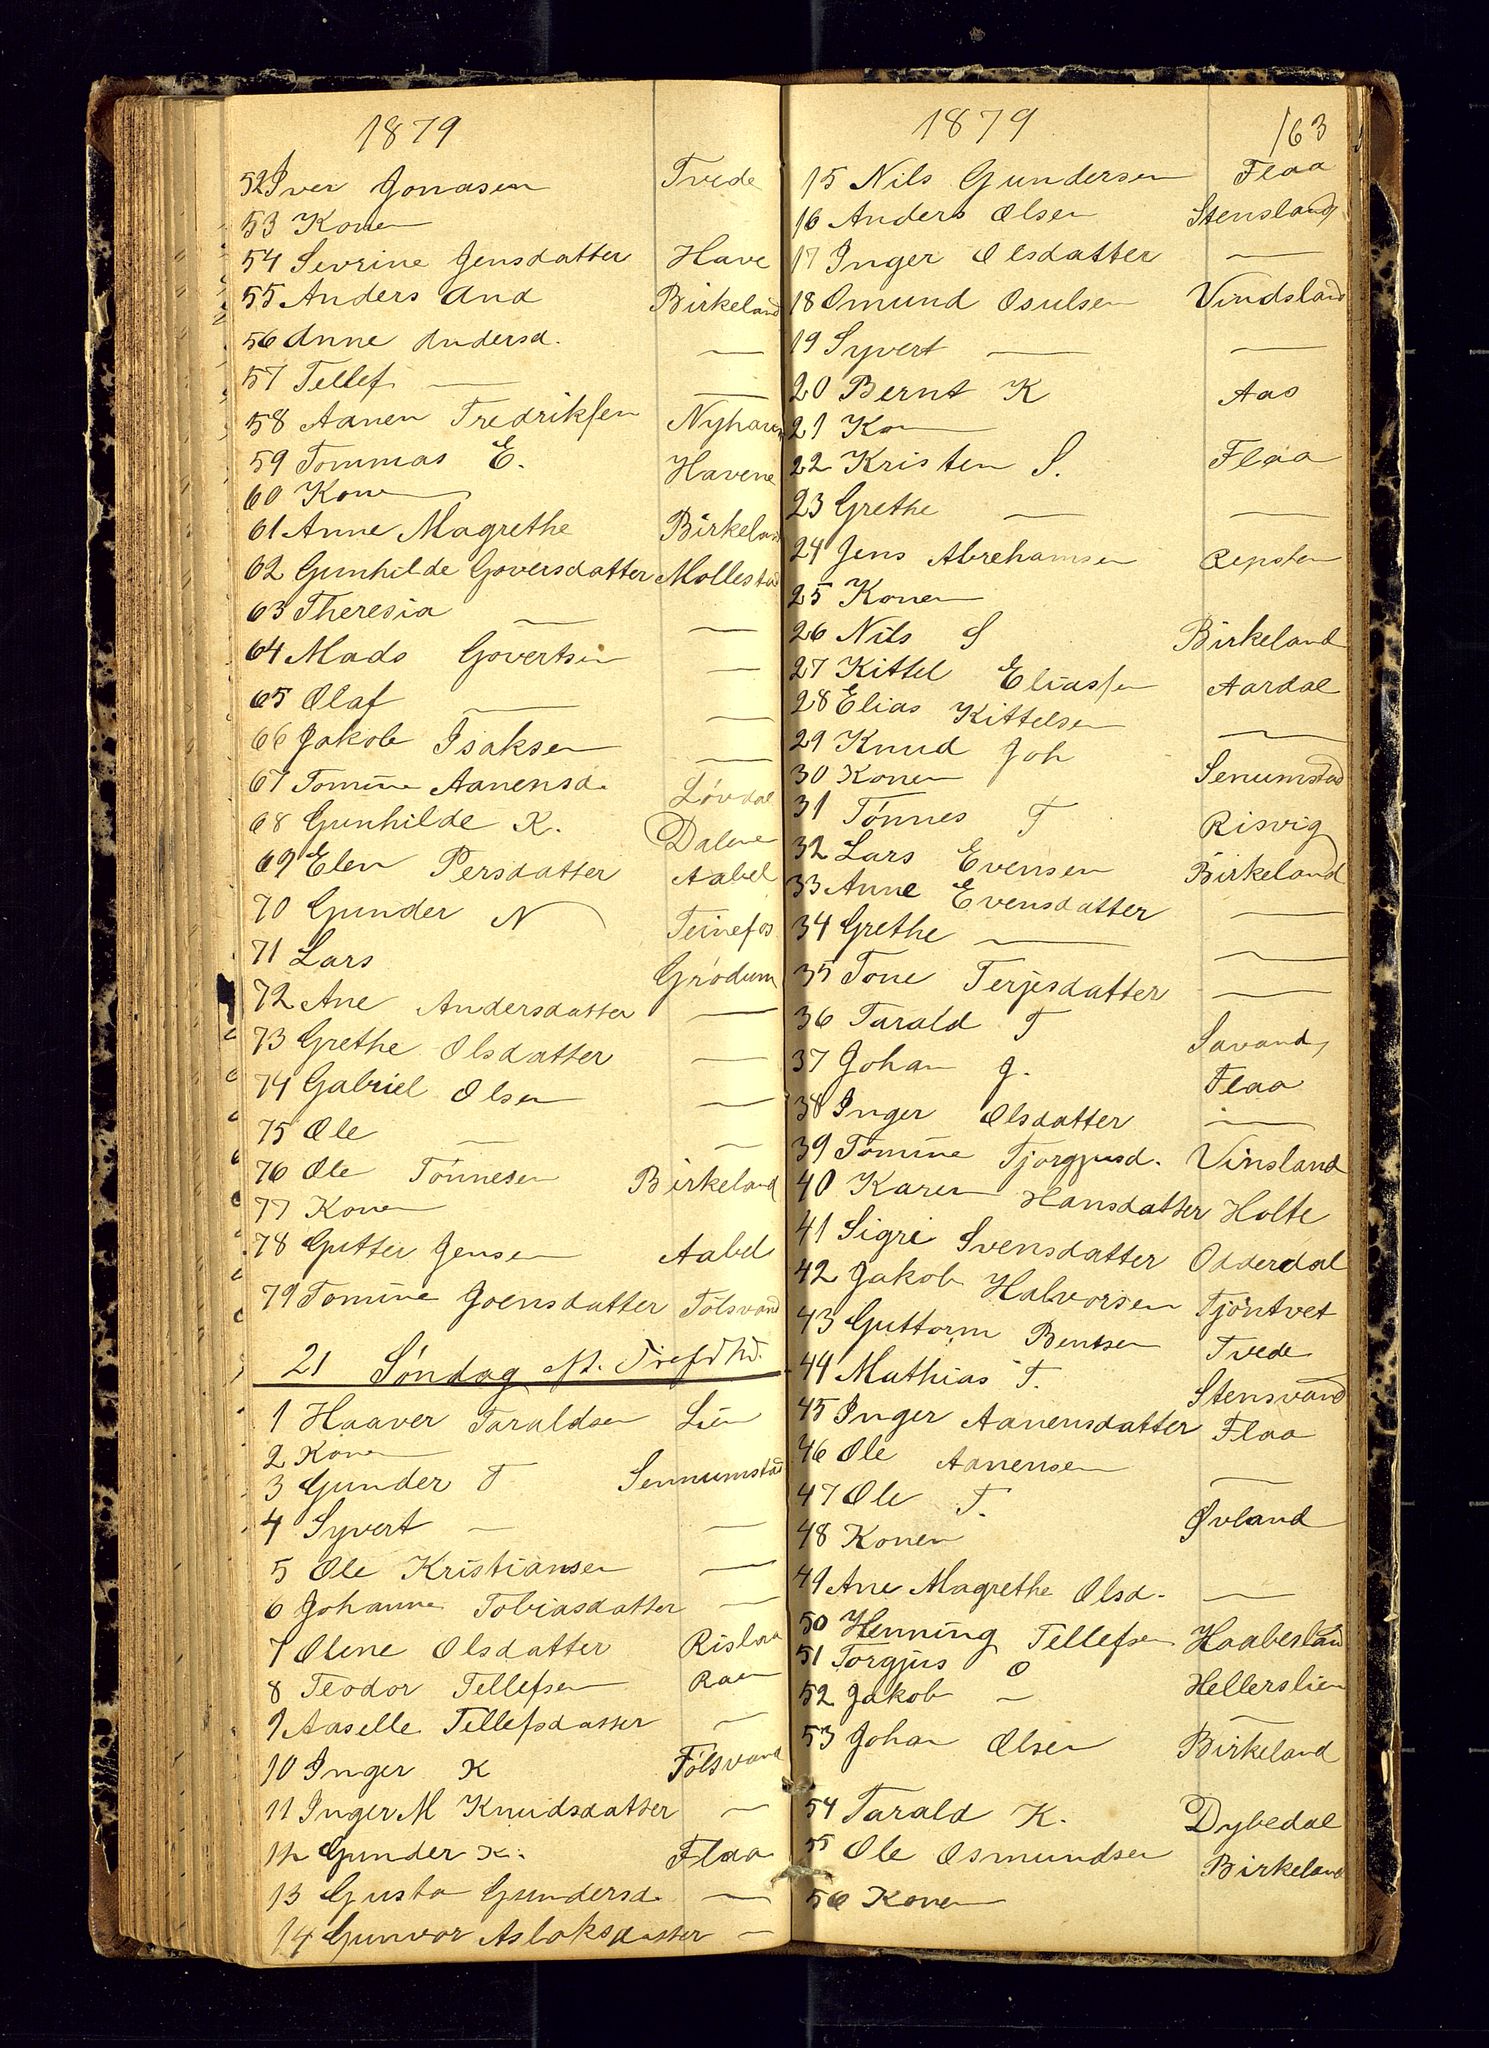 1879
52 Iver Jonasen Tvede
53 Konen
54 Sevrine Jensdatter Have
55 Anders And Birkeland
56 Anne Andersd. —
57 Tellef — —
58 Aanen Fredriksen Nyhaven
59 Tommas E. Havene
60 Konen
61 Anne Magrethe Birkeland
62 Gunhilde Goversdatter Mollestad
63 Theresia — —
64 Mads Govertsen —
65 Olaf — —
66 Jakob Isaksen —
67 Tomine Aanensd. Løvdal
68 Gunhilde K. Dalene
69 Elen Persdatter Aabel
70 Gunder N Teinefos
71 Lars Grødum
72 Ane Andersdatter —
73 Grethe Olsdatter —
74 Gabriel Olsen —
75 Ole — —
76 Ole Tønnesen Birkeland
77 Konen
78 Gutter Jensen Aabel
79 Tomine Joensdatter Tolsvand
21 Søndag
1 Haaver Taraldsen Lien
2 Konen
3 Gunder T Sennumstad
4 Syvert — —
5 Ole Kristiansen —
6 Johanne Tobiasdatter —
7 Oline Olsdatter
8 Teodor Tellefsen Raen
9 Aaselle Tellefsdatter —
10 Inger K Tolsvand
11 Inger M Knudsdatter —
12 Gunder K. Flaa
13 Gusta Gundersd. —
14 Gunvor Aslaksdatter —
1879 163
15 Nils Gundersen Flaa
16 Anders Olsen Stensland
17 Inger Olsdatter —
18 Omund Osulsen Vindsland
19 Syvert — —
20 Bernt K Aas
21 Kon
22 Kristen S. Flaa
23 Grethe — —
24 Jens Abrehamsen Repsten
25 Konen
26 Nils S Birkeland
27 Kittel Eliassen Aardal
28 Elias Kittelsen —
29 Knud Joh
30 Konen Senumstad
31 Tønnes T Risvig
32 Lars Evensen Birkeland
33 Anne Evensdatter —
34 Grethe — —
35 Tone Terjesdatter —
36 Tarald T Savand
37 Johan J. Flaa
38 Inger Olsdatter —
39 Tomine Tjorgjusd. Vinsland
40 Karen Hansdatter Holte
41 Sigri Svensdatter Odderdal
42 Jakob Halvorsen Tjøntvet
43 Guttorm Bentsen Tvede
44 Mathias T. Stensvand
45 Inger Aanensdatter Flaa
46 Ole Aanensen —
47 Ole T. Øvland
48 Konen
49 Ane Magrethe Olsd. —
50 Henning Tellefsen Haabesland
51 Torgjus O Hellerslien
52 Jakob — —
53 Johan Olsen Birkeland
54 Tarald K. Dybedal
55 Ole Osmundsen Birkeland
56 Konen